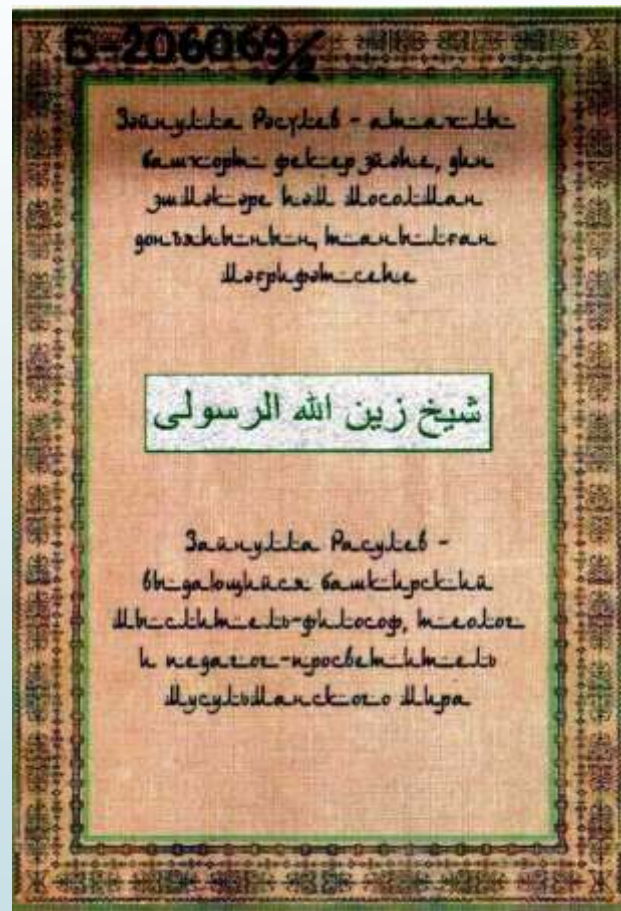 Б-206069/2
Зәйнулла Рәсүлев - атаҡлы
башҡорт фекер эйәһе, дин
эшмәкәре һәм мосолман
донъяһының танылған
мәғрифәтсеһе
شيخ زين الله الرسولى
Зайнулла Расулев -
выдающийся башкирский
мыслитель-философ, теолог
и педагог-просветитель
мусульманского мира